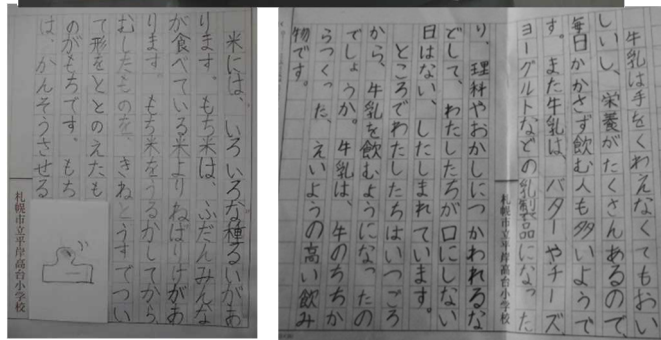 米には、いろいろな種るいがあ
ります。もち米は、ふだんみんな
が食べている米よりねばりけがあ
ります。もち米をうるかしてから
むしたものを、きねとうすでつい
て形をととのえたも
のがもちです。もち
は、かんそうさせる
札幌市立平岸高台小学校
牛乳は手をくわえなくてもおい
しいし、栄養がたくさんあるので、
毎日かかさず飲む人も多いようで
す。また牛乳は、バターやチーズ
ヨーグルトなどの乳製品になった
り、理科やおかしにつかわれるな
どして、わたしたちが口にしない
日はない、したしまれています。
ところでわたしたちはいつごろ
から、牛乳を飲むようになったの
でしょうか。牛乳は、牛のちちか
らつくった、えいようの高い飲み
物です。
札幌市立平岸高台小学校